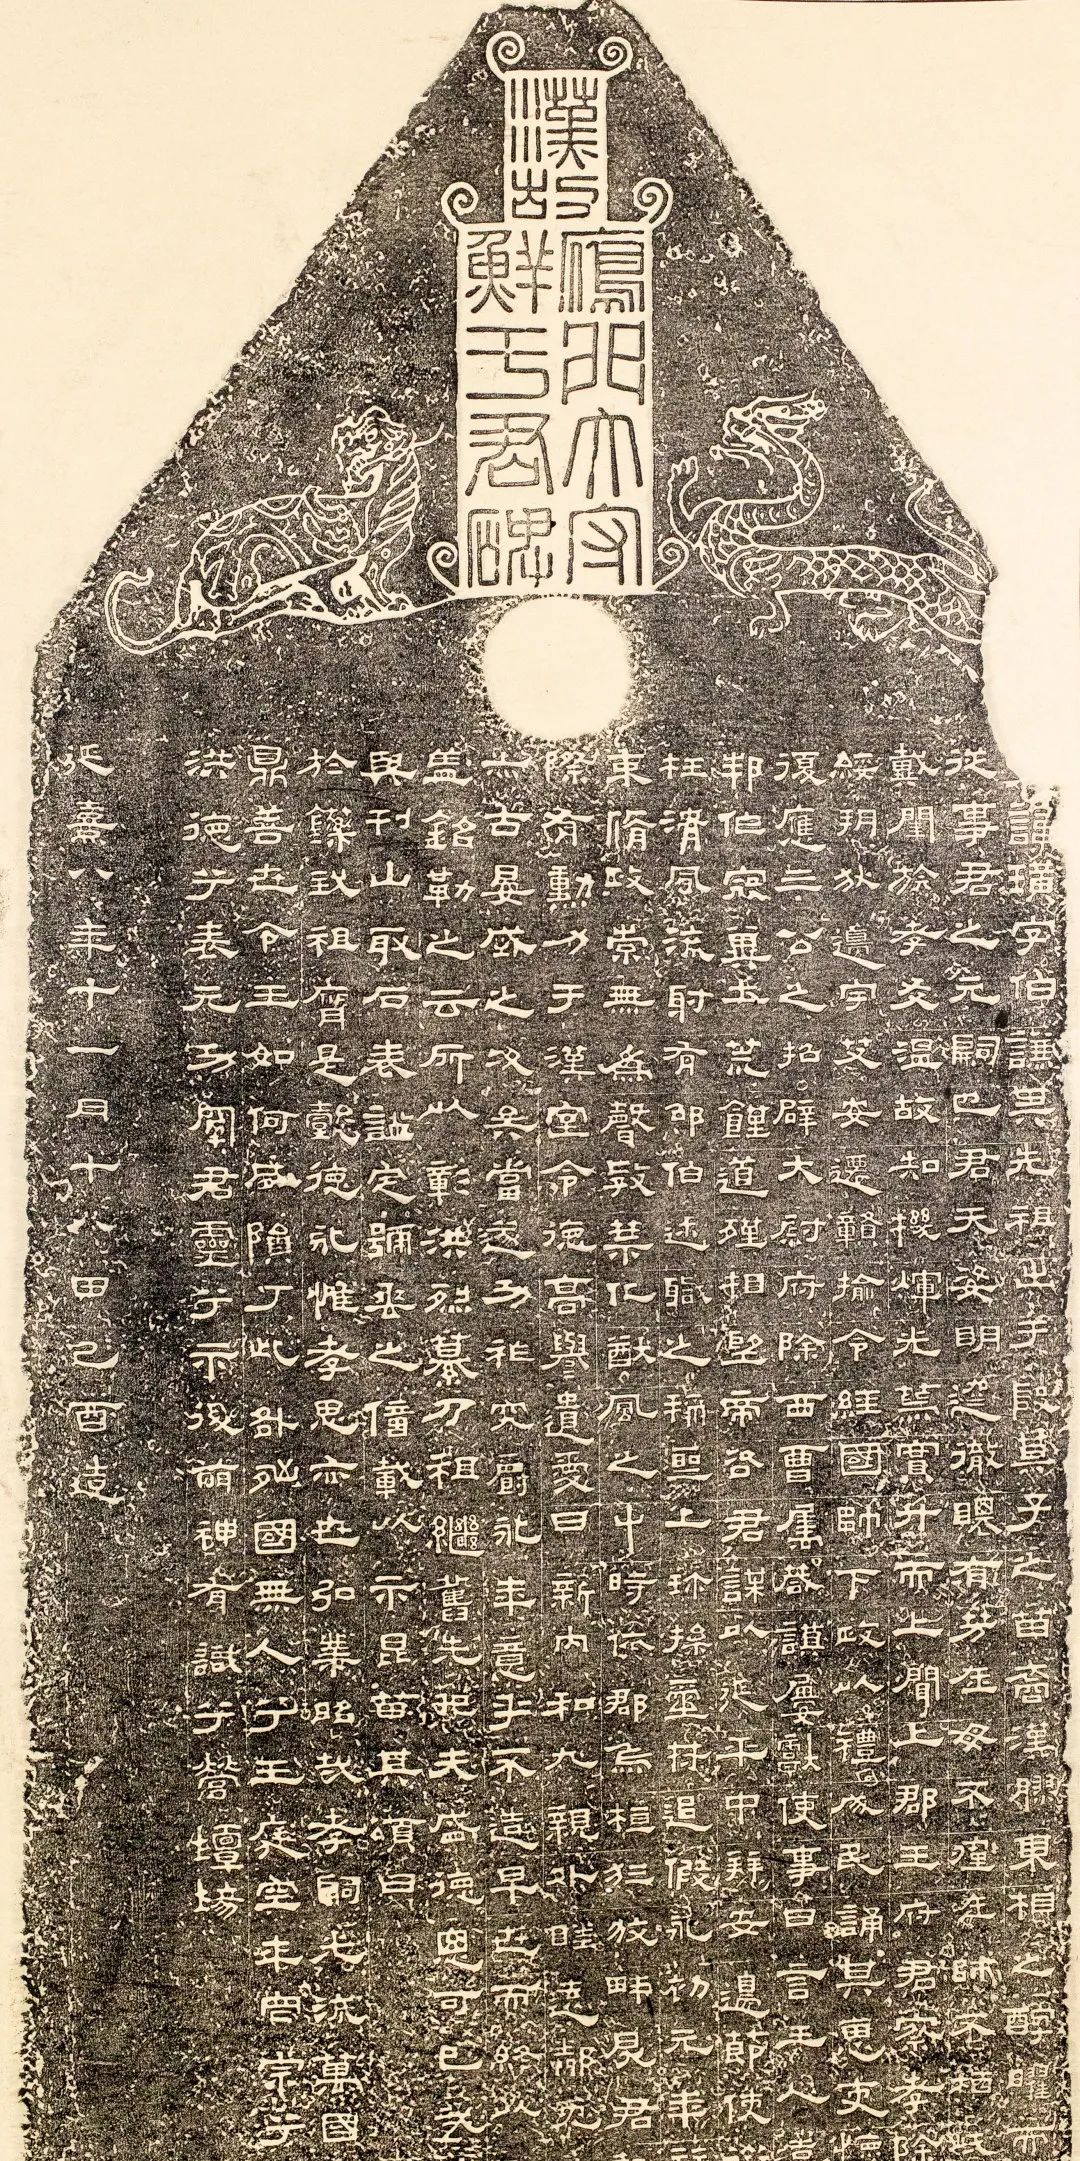 漢故鴈門太守
鮮于君碑
諱璜字伯謙其先祖出于殷箕子之苗裔漢膠東相之醇曜而
從事君之元嗣也君天姿明达徹聰有芳在母不瘇在師不煩
戴閏於孝久溫故知機煇光篤實升而上聞上郡王府君察孝除
綏朔狄邊宇艾安遷贛揄令經國帥下政以禮成民誦其惠吏懷
復應三公之招辟大尉府除西曹屬政謨屢獻使事日言士人
邦伯寂冥土荒饉道殣相望帝咨君謀以延平中拜安邊節使
枉清風流射有邵伯述職之稱璽上珍操璽符追假永初元年
東脩政崇無為聲教禁化猷風之中時依郡烏桓狂狡畔戾君
際有勳力于漢室令德高譽遺愛日新內和九親外睦遠鄰
為古晏盛之次其當遂功祚究爵永年意乎不造早世而終
孟銘勒之云所以彰洪烈纂乃祖繼舊先非夫盛德惡可已
與刊山取石表謚定號垂之億載以示昆苗其頌曰
於鑠我祖膺是懿德永惟孝思亦世弘業昭哉孝嗣光流萬國
鼎善世令王如何夙隕丁此咎殃國無人兮王庭空士罔宗兮
洪德兮表元功闡君靈兮示後萌神有識兮營壇場
延熹八年十一月十八日己酉造